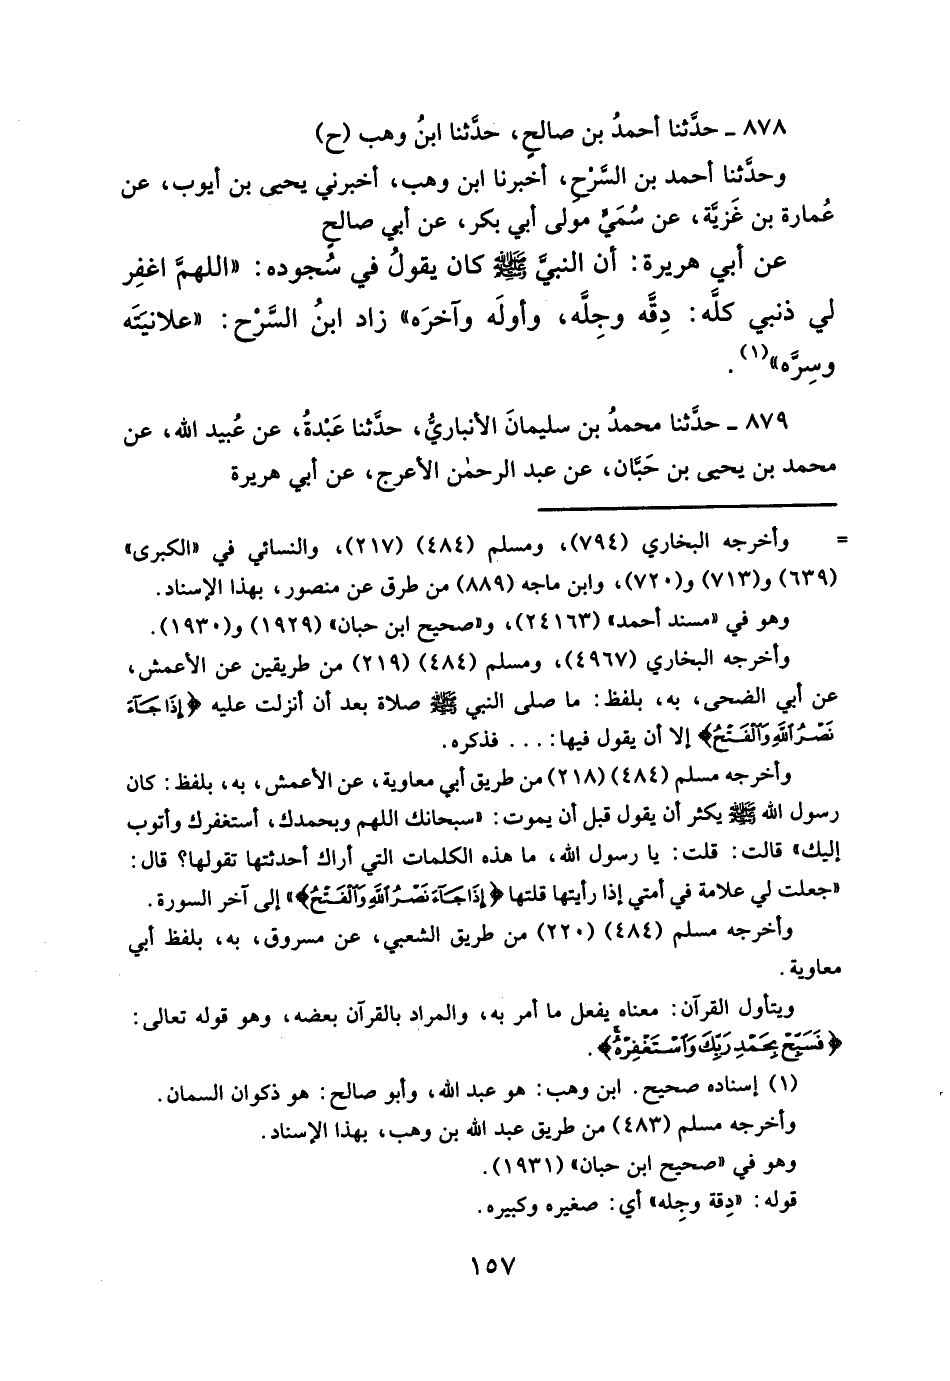 ٨٧٨ ـ حدَّثنا أحمدُ بن صالحٍ، حدَّثنا ابنُ وهب (ح)
وحدَّثنا أحمد بن السَّرْحِ، أخبرنا ابن وهب، أخبرني يحيى بن أيوب، عن
عُمارة بن غَزيَّة، عن سُمَيٍّ مولى أبي بكر، عن أبي صالحٍ
عن أبي هريرة: أن النبيَّ ﷺ كان يقولُ في سُجوده: «اللهمَّ اغفِر
لي ذنبي كلَّه: دِقَّه وجِلَّه، وأولَه وآخرَه» زاد ابنُ السَّرْح: «علانيَتَه
وسِرَّه»(١).
٨٧٩ ـ حدَّثنا محمدُ بن سليمانَ الأنباريُّ، حدَّثنا عَبْدةُ، عن عُبيد الله، عن
محمد بن يحيى بن حَبَّان، عن عبد الرحمٰن الأعرج، عن أبي هريرة
= وأخرجه البخاري (٧٩٤)، ومسلم (٤٨٤) (٢١٧)، والنسائي في «الكبرى»
(٦٣٩) و(٧١٣) و(٧٢٠)، وابن ماجه (٨٨٩) من طرق عن منصور، بهذا الإسناد.
وهو في «مسند أحمد» (٢٤١٦٣)، و«صحيح ابن حبان» (١٩٢٩) و(١٩٣٠).
وأخرجه البخاري (٤٩٦٧)، ومسلم (٤٨٤) (٢١٩) من طريقين عن الأعمش،
عن أبي الضحى، به، بلفظ: ما صلى النبي ﷺ صلاة بعد أن أنزلت عليه ﴿إِذَا جَآءَ
نَصْرُ ٱللَّهِ وَٱلْفَتْحُ﴾ إلا أن يقول فيها: ... فذكره.
وأخرجه مسلم (٤٨٤) (٢١٨) من طريق أبي معاوية، عن الأعمش، به، بلفظ: كان
رسول الله ﷺ يكثر أن يقول قبل أن يموت: «سبحانك اللهم وبحمدك، أستغفرك وأتوب
إليك» قالت: قلت: يا رسول الله، ما هذه الكلمات التي أراك أحدثتها تقولها؟ قال:
«جعلت لي علامة في أمتي إذا رأيتها قلتها ﴿إِذَا جَآءَ نَصْرُ ٱللَّهِ وَٱلْفَتْحُ﴾» إلى آخر السورة.
وأخرجه مسلم (٤٨٤) (٢٢٠) من طريق الشعبي، عن مسروق، به، بلفظ أبي
معاوية.
ويتأول القرآن: معناه يفعل ما أمر به، والمراد بالقرآن بعضه، وهو قوله تعالى:
﴿فَسَبِّحْ بِحَمْدِ رَبِّكَ وَٱسْتَغْفِرْهُ﴾.
(١) إسناده صحيح. ابن وهب: هو عبد الله، وأبو صالح: هو ذكوان السمان.
وأخرجه مسلم (٤٨٣) من طريق عبد الله بن وهب، بهذا الإسناد.
وهو في «صحيح ابن حبان» (١٩٣١).
قوله: «دِقة وجِله» أي: صغيره وكبيره.
١٥٧